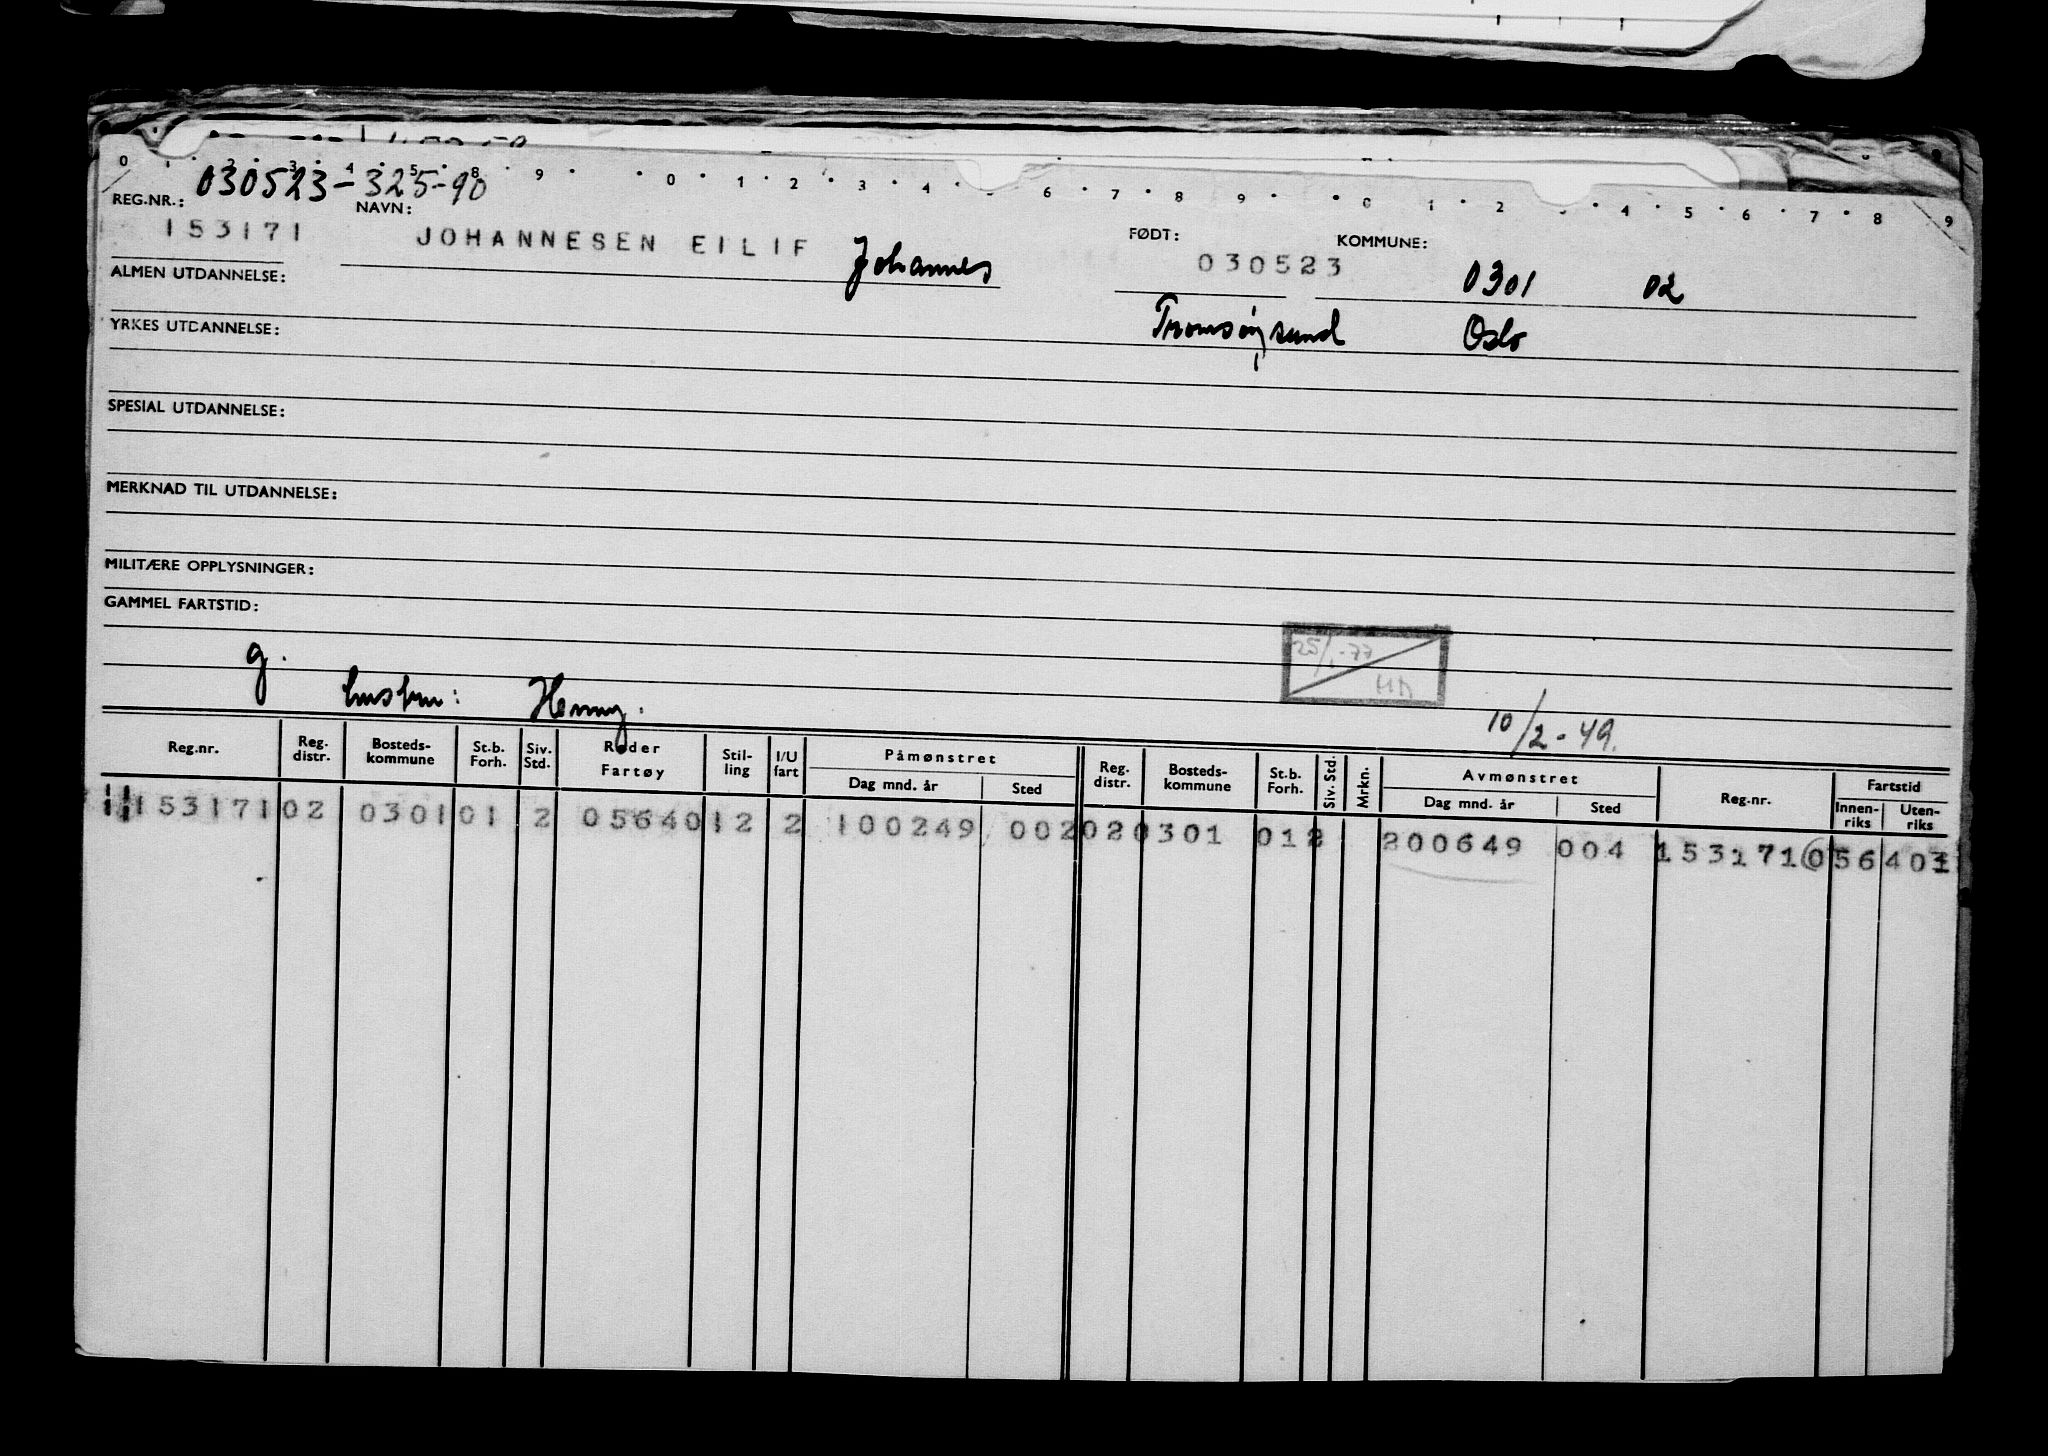 0 . 2 . 3 . 4 . 5 . 8 9 . . 0 . 1 . 2 . 3 . 4 . 6 . 7 . 8 9 . . 0 . 1 . 2 . 4 . 5 . 6 . 7 . 8 . 9
REG.NR.: 030523-325-90
NAVN: FØDT: KOMMUNE:
153171 JOHANNESEN EILIF Johannes 030523 0301 02
ALMEN UTDANNELSE:
YRKES UTDANNELSE: Tromsøysund Oslo
SPESIAL UTDANNELSE:
MERKNAD TIL UTDANNELSE:
MILITÆRE OPPLYSNINGER:
GAMMEL FARTSTID:
25/1-77
g. hustru: Henny. 10/2-49.
Reg.nr. Reg. distr. Bosteds-kommune St.b. Forh. Siv. Std. Reder Fartøy Stil-ling I/U fart Påmønstret Dag mnd. år Sted Reg. distr. Bosteds-kommune St.b. Forh. Siv. Std. Mrkn. Avmønstret Dag mnd. år Sted Reg.nr. Fartstid Innen-riks Uten-riks
153171 02 0301 01 2 05640 12 2 100249 002 02 0301 01 2 200649 004 153171 056401